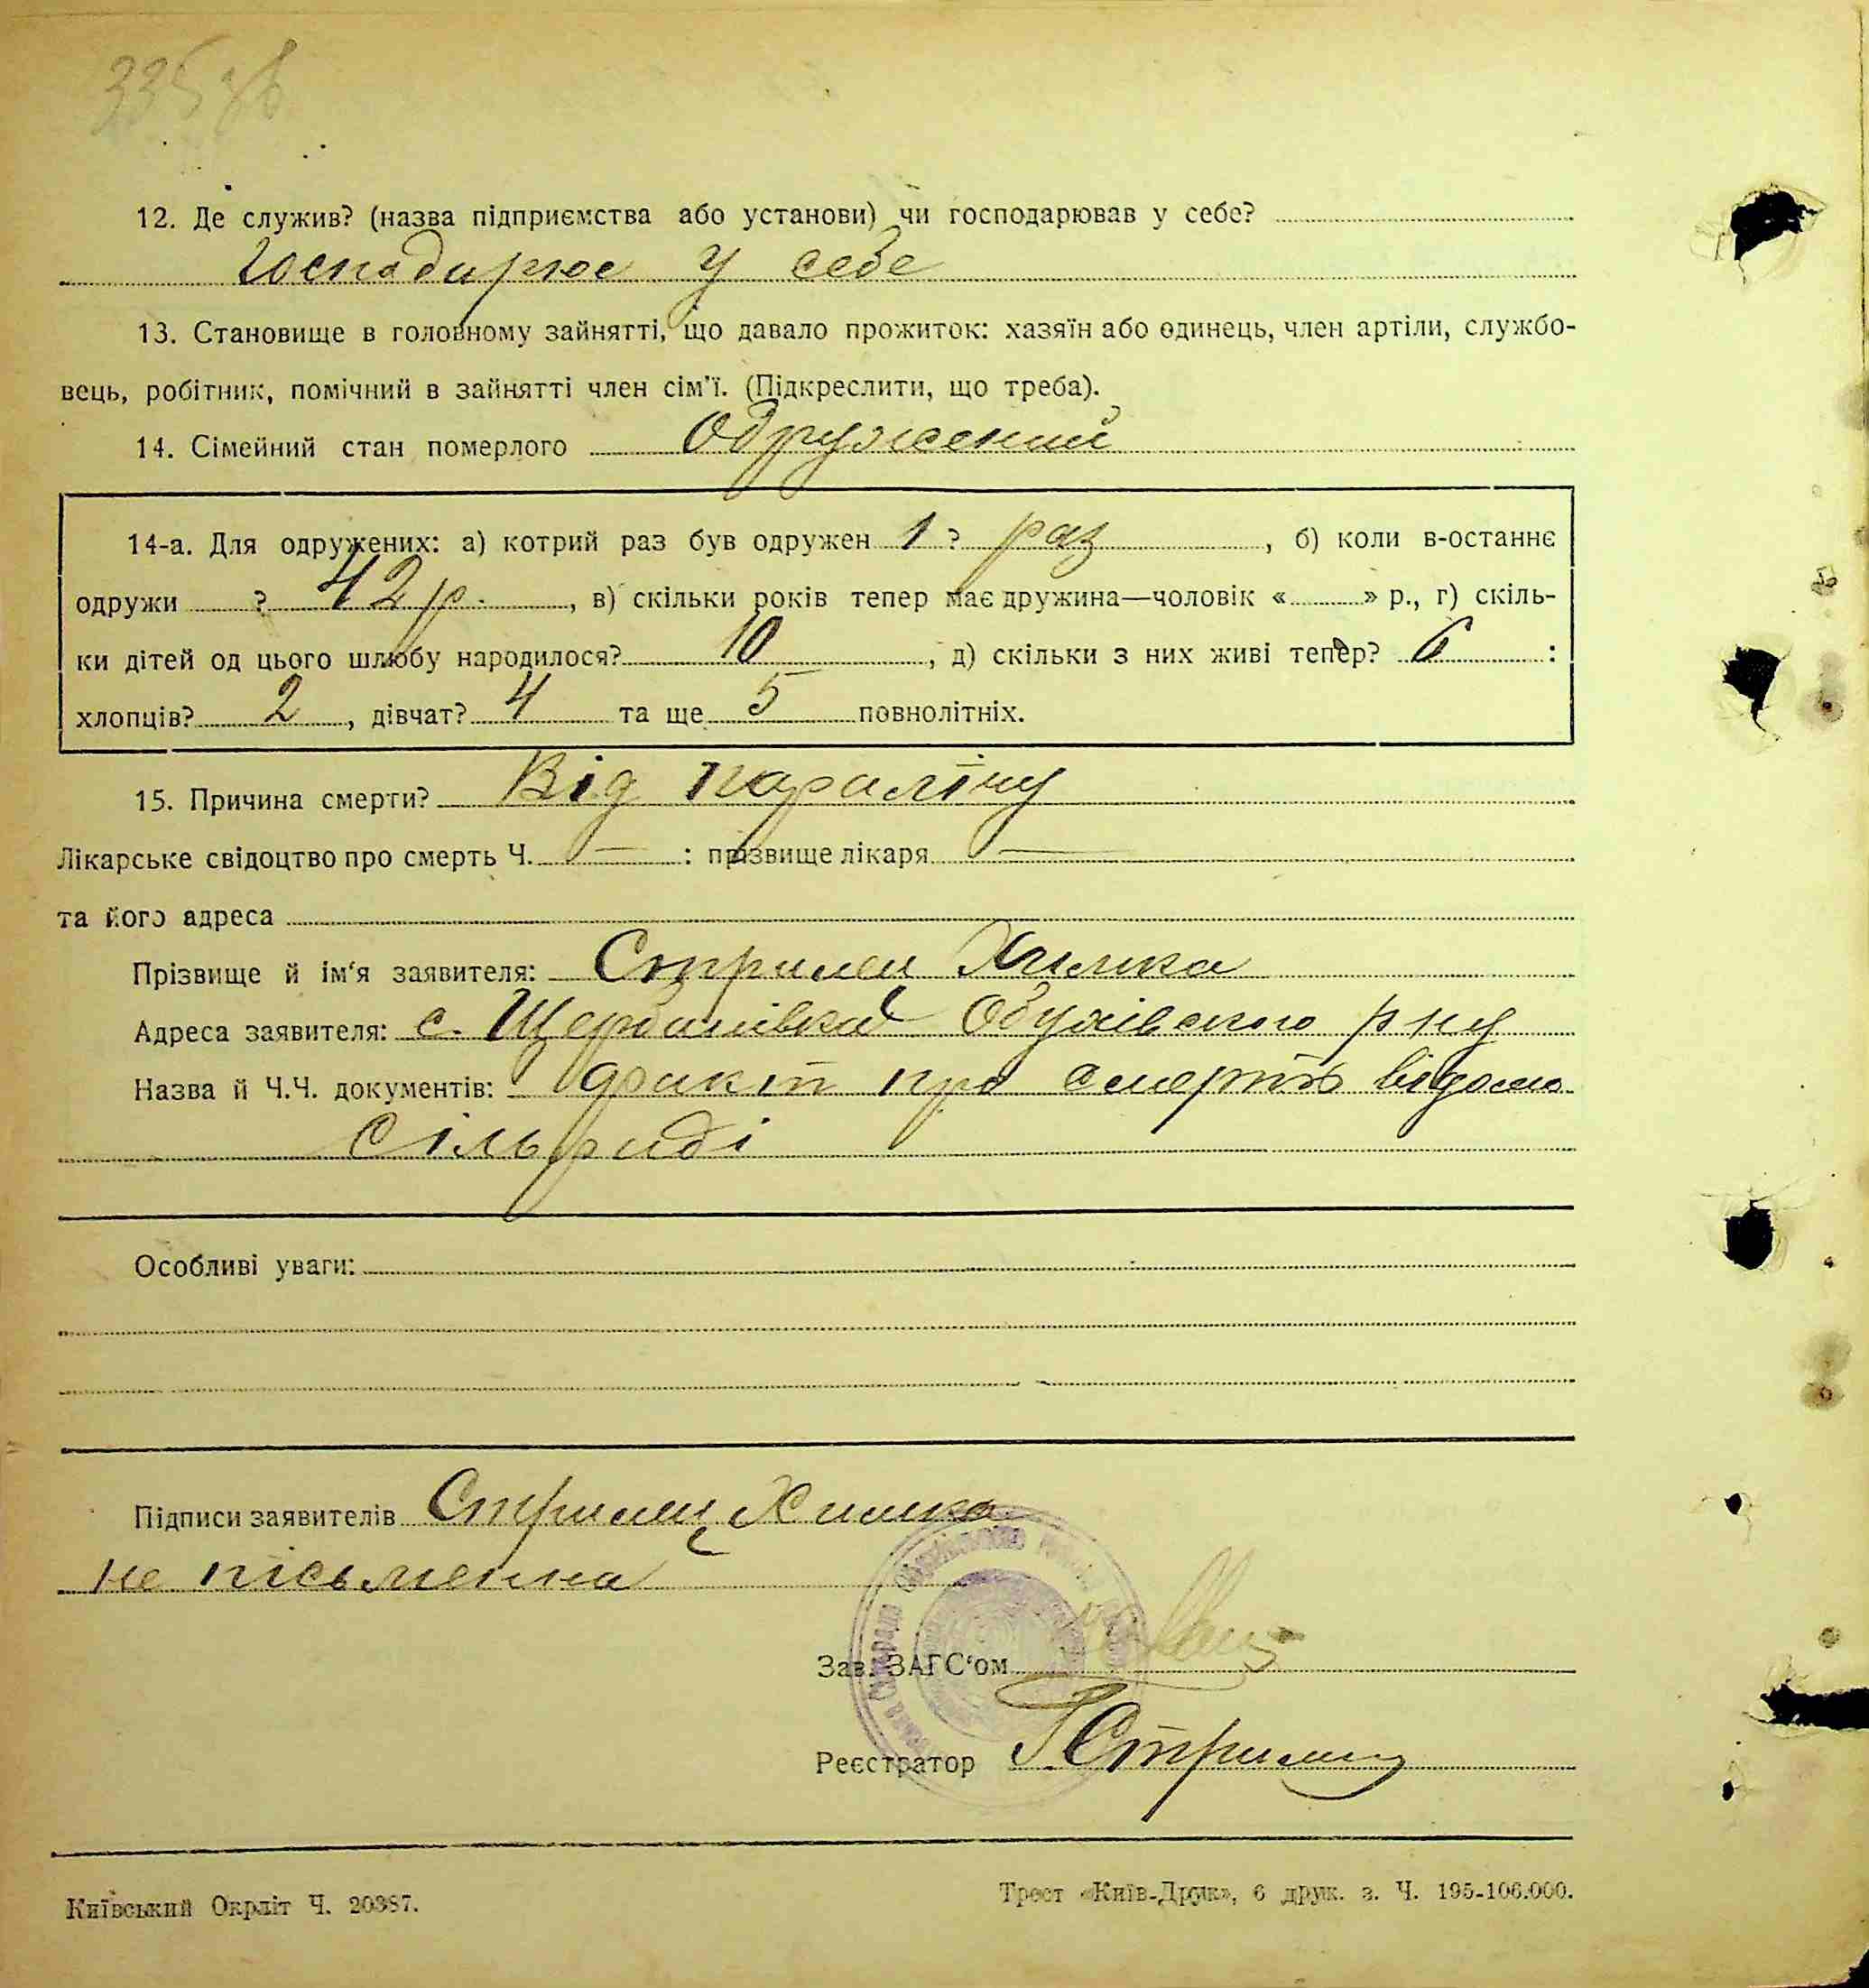 335 зв
12. Де служив? (назва підприємства або установи) чи господарював у себе?
Господарює у себе
13. Становище в головному зайнятті, що давало прожиток: хазяїн або одинець, член артіли, службо-
вець, робітник, помічний в зайнятті член сім'ї. (Підкреслити, що треба).
14. Сімейний стан померлого Одружений
14-а. Для одружених: а) котрий раз був одружен 1 ? раз, б) коли в-останнє
одружи ? 42 р., в) скільки років тепер має дружина—чоловік « » р., г) скіль-
ки дітей од цього шлюбу народилося? 10, д) скільки з них живі тепер? 6 :
хлопців? 2, дівчат? 4 та ще 5 повнолітніх.
15. Причина смерти? Від паралічу
Лікарське свідоцтво про смерть Ч. — : прізвище лікаря —
та його адреса
Прізвище й ім'я заявителя: Стрилец Химка
Адреса заявителя: с. Щербанівка Обухівського р-ну
Назва й Ч.Ч. документів: факт про смерть відомо
сільраді
Особливі уваги:
Підписи заявителів Стрилец Химка
не пісьменна
Зав. ЗАГС'ом
Реєстратор Стрилец
Київський Окрліт Ч. 20387.
Трест «Київ-Друк», 6 друк. з. Ч. 195-106.000.